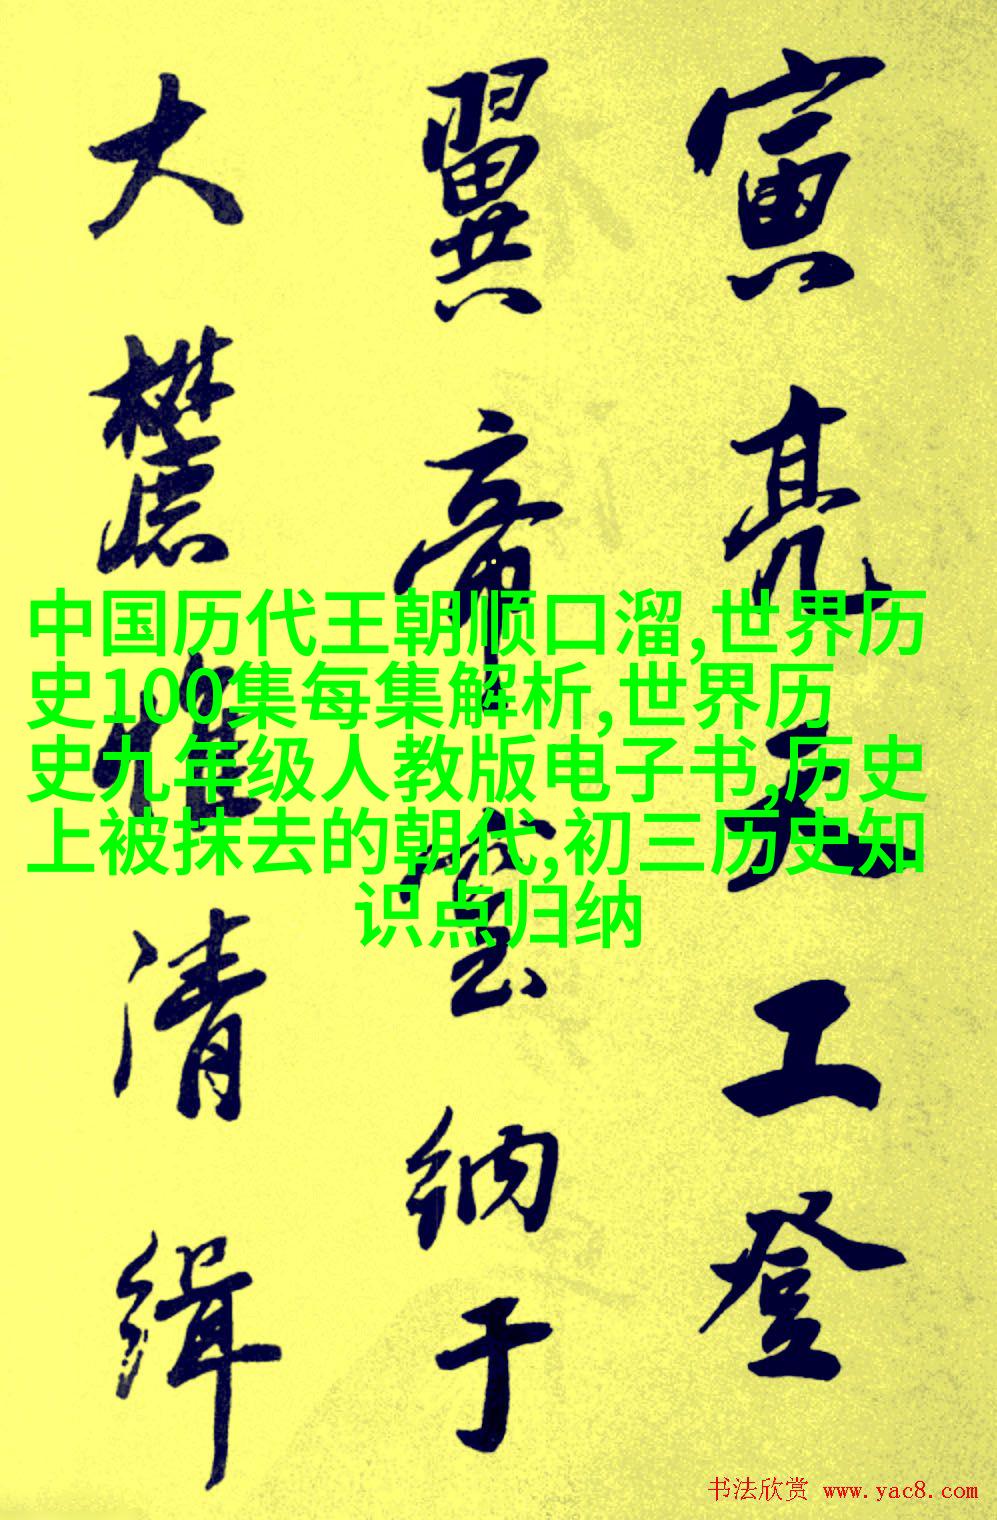 寅亮天工登
翼帝室纳于
大麓惟清缉
中国历代王朝顺口溜,世界历
史100集每集解析,世界历
史九年级人教版电子书,历史
上被抹去的朝代,初三历史知
识点归纳
书法欣赏 www.yac8.com